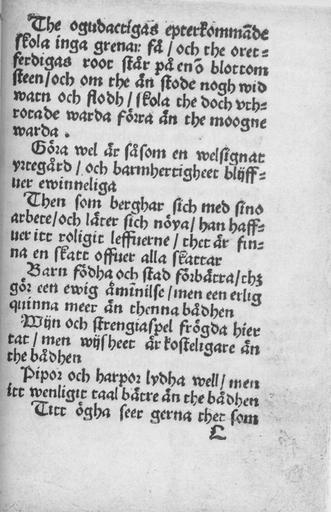 The ogudactigas epterkommāde
skola inga grenar få / och the oret-
ferdigas root står på en˜o blottom
steen / och om the ån stode nogh wid
watn och flodh / skola the doch vth-
rotade warda förra ån the moogne
warda.
Göra wel år såsom en welsignat
yrtegård / och barmhertigheet bliff-
uer ewinneliga
Then som berghar sich med sino
arbete / och låter sich nöya / han haff-
uer itt roligit leffuerne / thet år fin-
na en skatt offuer alla skattar
Barn födha och stad förbåtra / thʒ
gör een ewig åmīnilse / men een erlig
quinna meer ån thenna bådhen
Wijn och strengiaspel frögda hier
tat / men wijsheet år kosteligare ån
the bådhen
Pipor och harpor lydha well / men
itt wenligit taal båtre ån the bådhen
Titt ögha seer gerna thet som
L